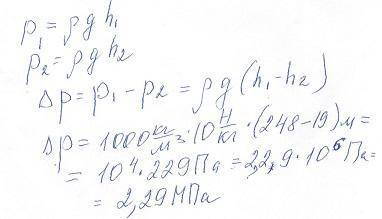 p₁ = ρ g h₁
p₂ = ρ g h₂
Δp = p₁ - p₂ = ρ g (h₁ - h₂)
Δp = 1000 кг/м³ · 10 Н/кг · (248 - 19) м =
= 10⁴ · 229 Па = 2,29 · 10⁶ Па =
= 2,29 МПа